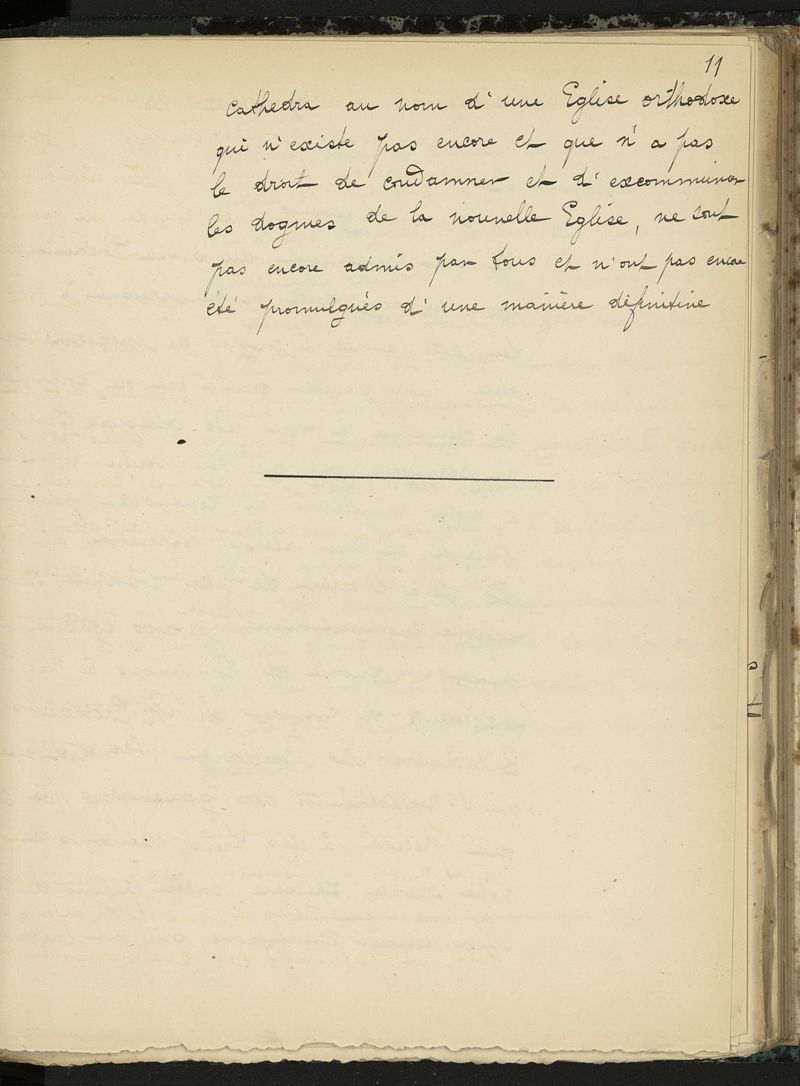 11
cathedra au nom d'une Eglise orthodoxe
qui n'existe pas encore et que n'a pas
le droit de condamner et d'excommunier
les dogmes de la nouvelle Eglise, ne sont
pas encore admis par tous et n'ont pas encore
été promulgués d'une manière définitive